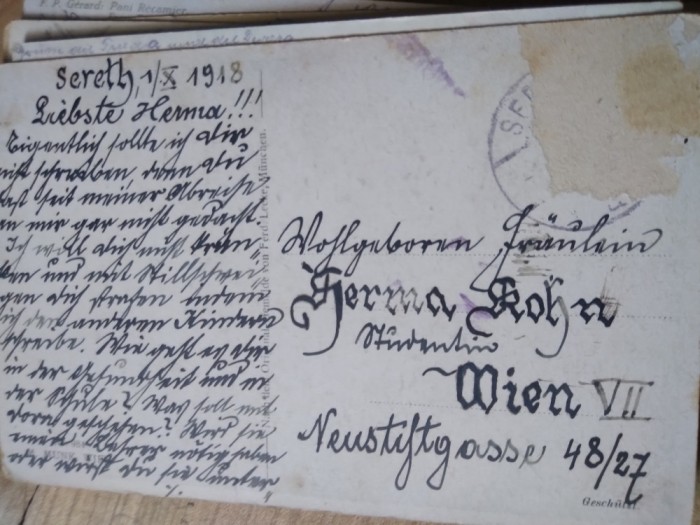 F. P. Gerard: Pani Recamier
Sereth, 1/X 1918
Liebste Herma!!!
Eigentlich sollte ich Dir
nicht schreiben, denn Du
hast seit meiner Abreise
an mir gar nicht gedacht.
Ich will Dich nicht krän-
ken und mit Stillschwei-
gen Dich strafen indem
ich den anderen Kindern
schreibe. Wie geht es Dir
in der Gesundheit und in
der Schule? Was soll mit
Dora geschehen? Wird sie
mein Lehrer nötig haben
oder wirst du sie unter-
München.
SER
Wohlgeboren Fräulein
Herma Kohn
Studentin
Wien VII
Neustiftgasse 48/27
Geschützt